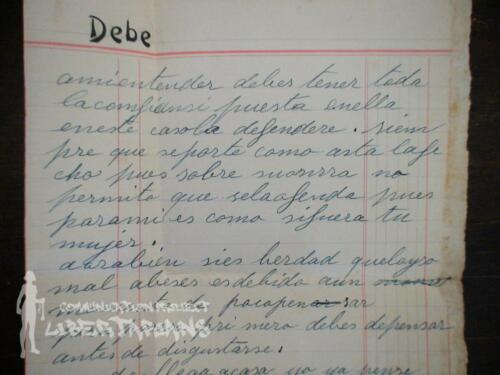 Debe
amientender debes tener toda
la comfiansi puesta enella
eneste casola defendere. siem
pre que seporte como asta lafe
cho pues sobre morrra no
permito que selaofenda pues
parami es como sifuera tu
mujer.
aorabién sies berdad quelayso
mal abeses esdebido aun
pocopensar
primero debes depensar
antes de disgustarse.
llega acasa yo ya pense
COMMUNICATION PROJECT
LIBERTARIANS